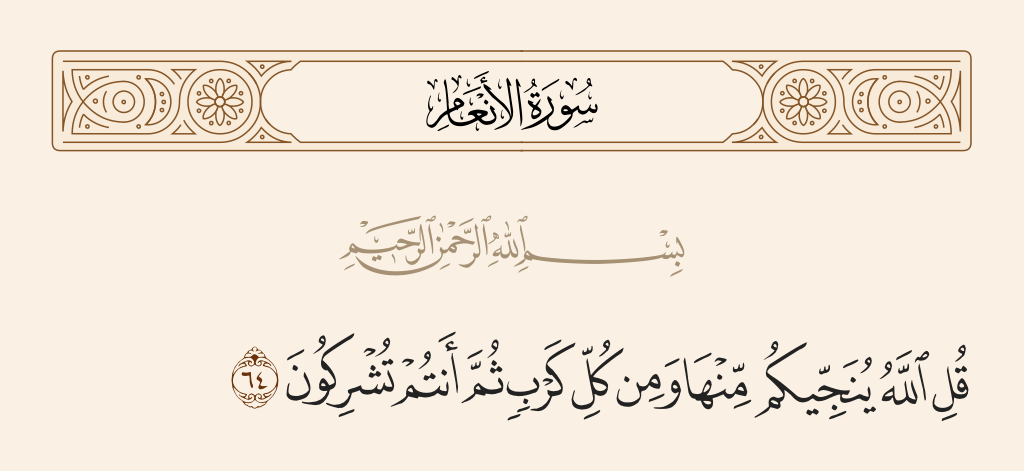 سُورَةُ الأَنْعَامِ
بِسْمِ ٱللَّهِ ٱلرَّحْمَٰنِ ٱلرَّحِيمِ
قُلِ ٱللَّهُ يُنَجِّيكُم مِّنْهَا وَمِن كُلِّ كَرْبٍ ثُمَّ أَنتُمْ تُشْرِكُونَ ٦٤